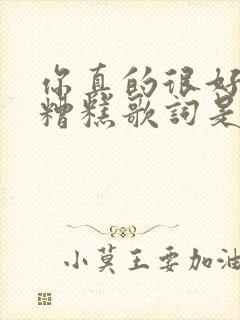 你真的很好
糟糕歌詞是
小莫王要加油